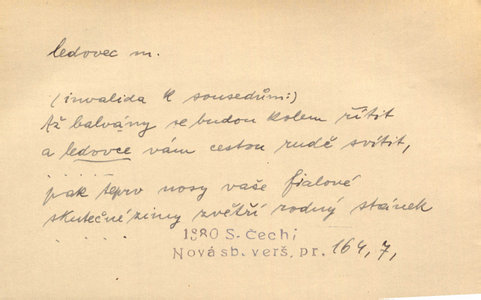 ledovec m.
(invalida k sousedům:)
Až balvány se budou kolem řítit
a ledovce vám cestou rudě svítit,
. . . . . .
pak teprv nosy vaše fialové
skutečné zimy zvětří rodný stánek
. . . . .
1880 S. Čech;
Nová sb. verš. pr. 164, 7,